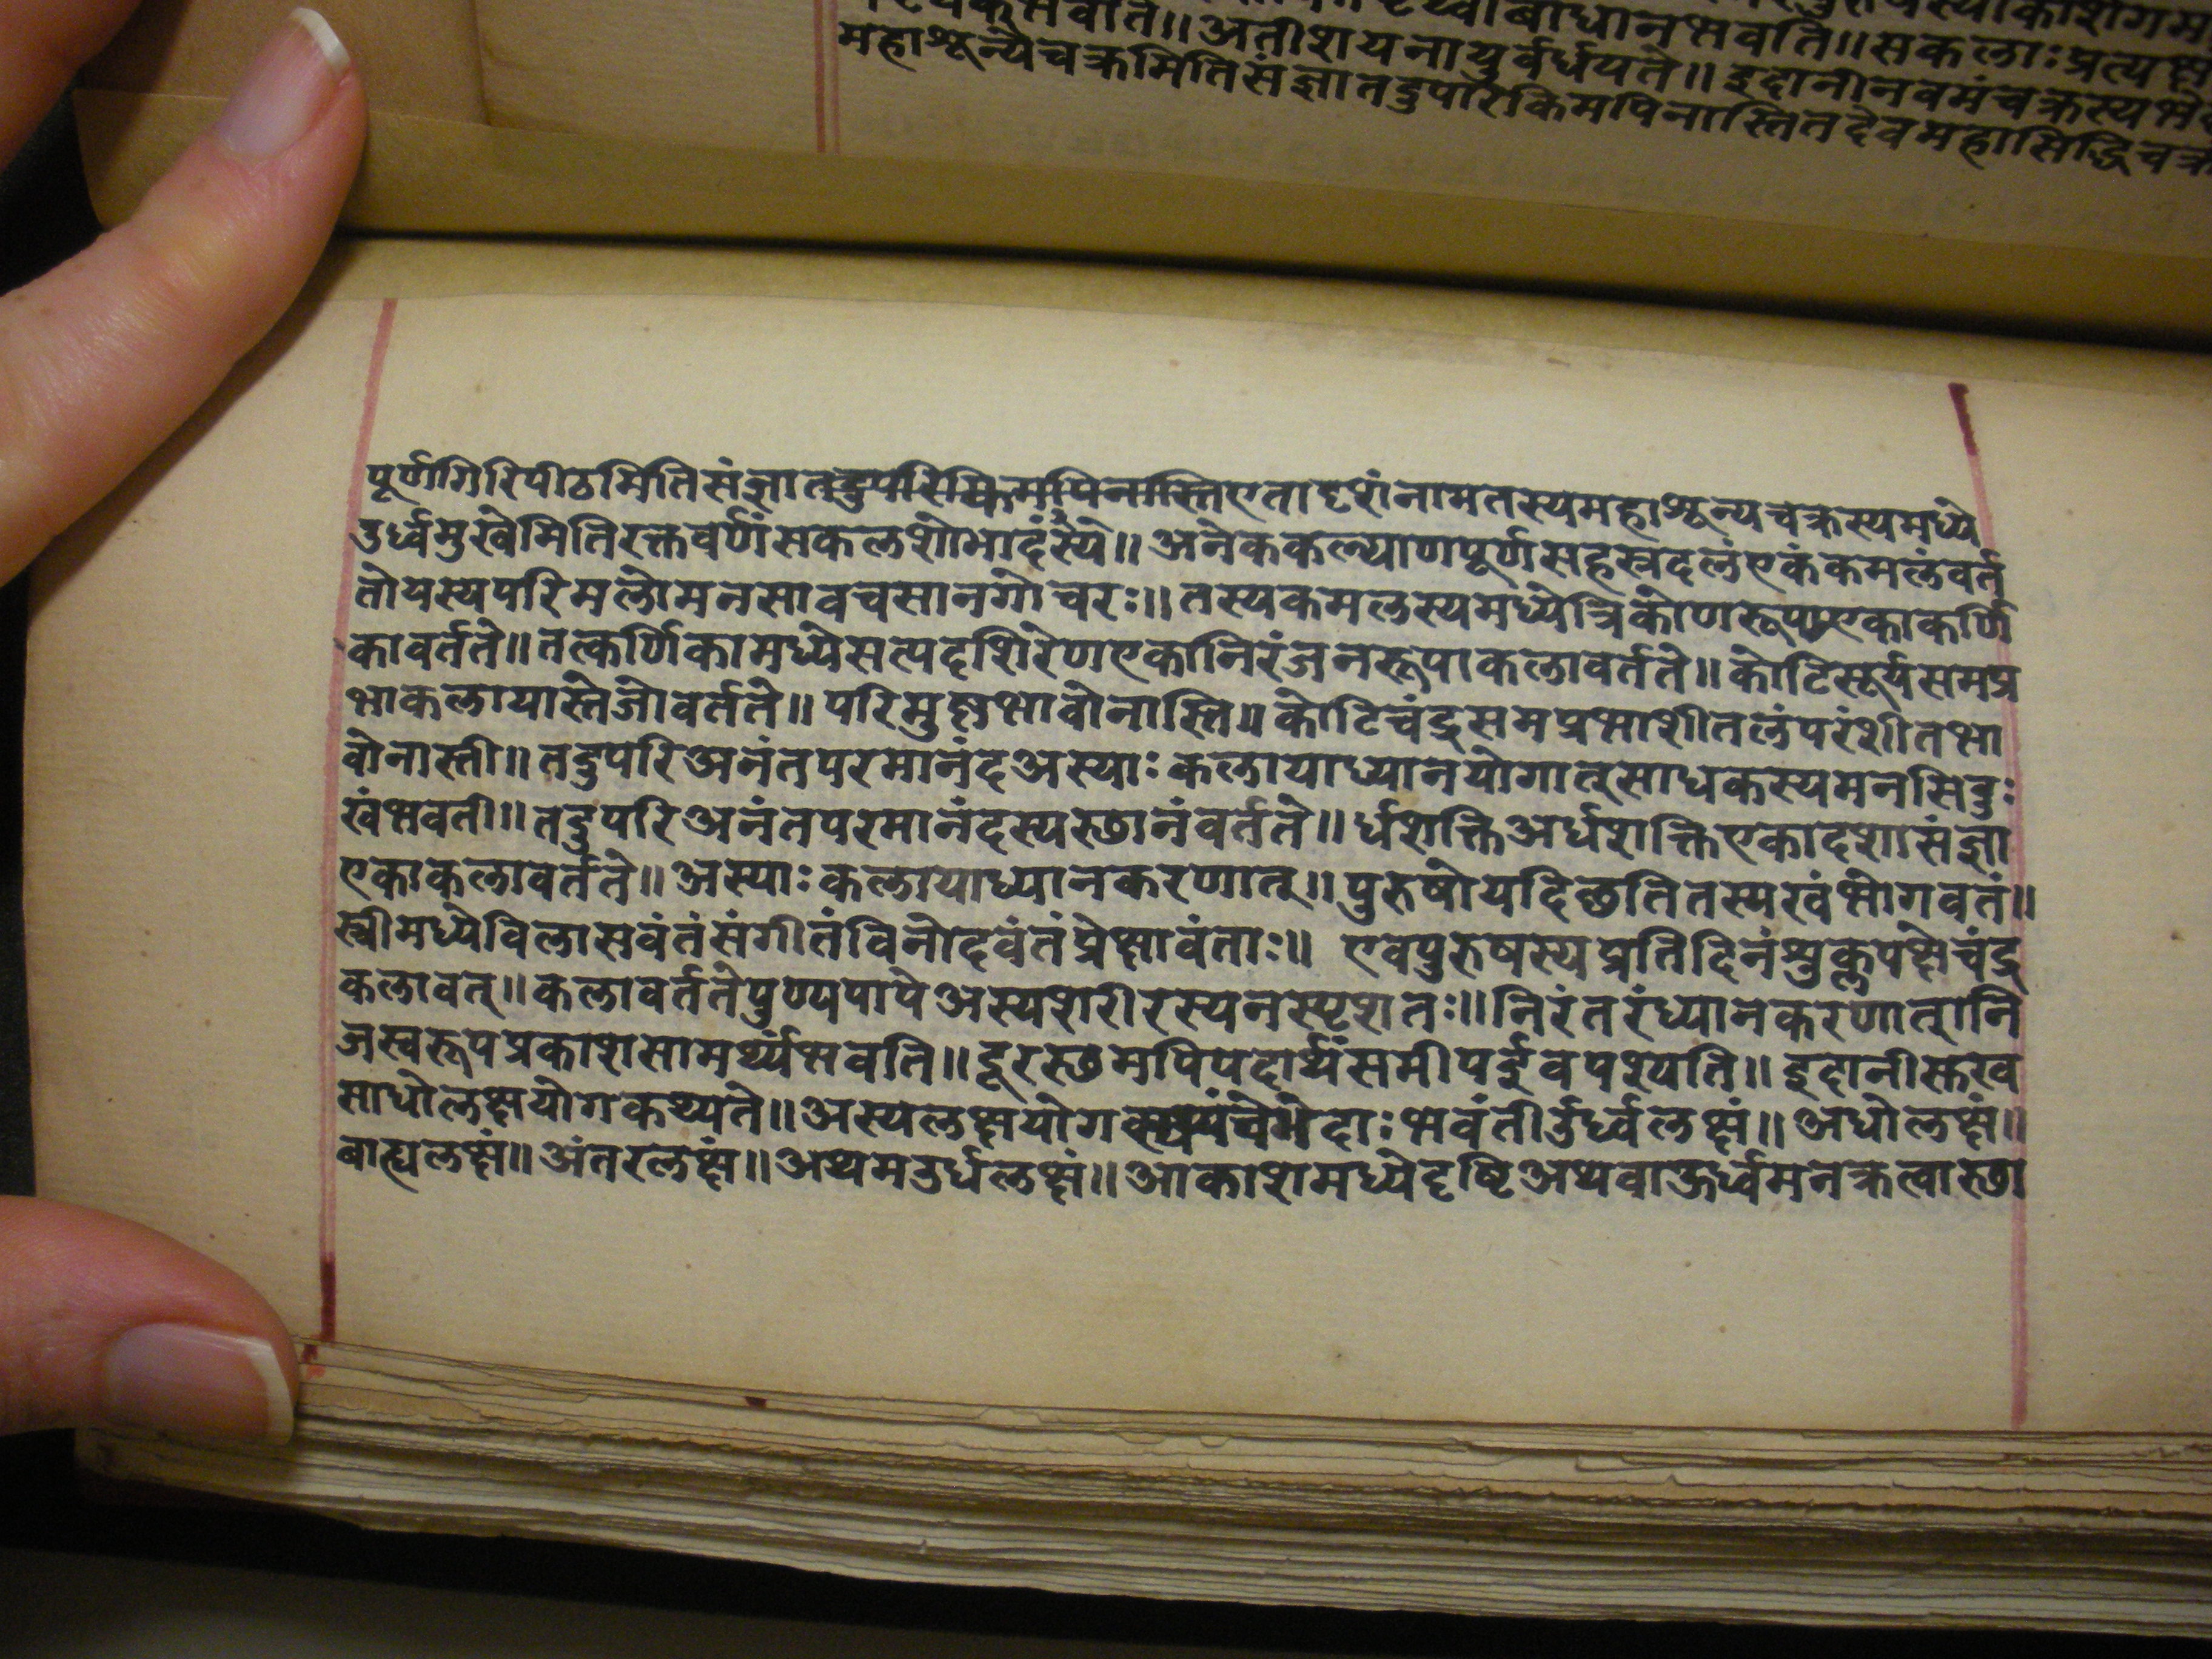 भवति॥अतीशयनायुर्वर्धयते॥इदानीनवमंचक्रस्य
महाशून्यैचक्रमितिसंज्ञातदुपरिकिमपिनास्तितदेवमहासिद्धिचक्र
पूर्णगिरिपीठमितिसंज्ञातदुपरिकिमपिनास्तिएतादृशंनामतस्यमहाशून्यचक्रस्यमध्ये
उर्ध्वमुखेमितिरक्तवर्णंसकलशोभादंस्यै॥अनेककल्याणपूर्णसहस्रदलंएकंकमलंवर्त
तोयस्यपरिमलोमनसावचसानगोचरः॥तस्यकमलस्यमध्येत्रिकोणरूपाएकाकर्णि
कावर्तते॥तत्कर्णिकामध्येसत्पदशिरेणएकानिरंजनरूपाकलावर्तते॥कोटिसूर्यसमप्र
भाकलायास्तेजोवर्तते॥परिमुष्णभावोनास्ति॥कोटिचंद्रसमप्रभाशीतलंपरंशीतभा
वोनास्ती॥तदुपरिअनंतपरमानंदअस्याःकलायाध्यानयोगात्साधकस्यमनसिदुः
खंभवती॥तदुपरिअनंतपरमानंदस्यस्छानंवर्तते॥र्धशक्तिअर्धशक्तिएकादशासंज्ञा
एकाकलावर्तते॥अस्याःकलायाध्यानकरणात्॥पुरुषोयदिछतितस्यखंभोगवतं॥
स्त्रीमध्येविलासवंतंसंगीतंविनोदवंतंप्रेक्षावंताः॥ एवपुरुषस्यप्रतिदिनंशुक्लपक्षेचंद्र
कलावत्॥कलावर्ततेपुण्यपापेअस्यशरीरस्यनस्पृशतः॥निरंतरंध्यानकरणात्नि
जस्वरूपप्रकाशसामर्थ्यंभवति॥दूरस्छमपिपदार्थंसमीपईवपश्यति॥इदानीस्तखव
साधोलक्षयोगकथ्यते॥अस्यलक्षयोग भेदाःभवंतीर्उर्ध्वलक्षं॥अधोलक्षं॥
बाह्यलक्षं॥अंतरलक्षं॥अथमउर्धलक्षं॥आकाशमध्येदृष्टिअथवाऊर्ध्वमनक्रत्वास्छा